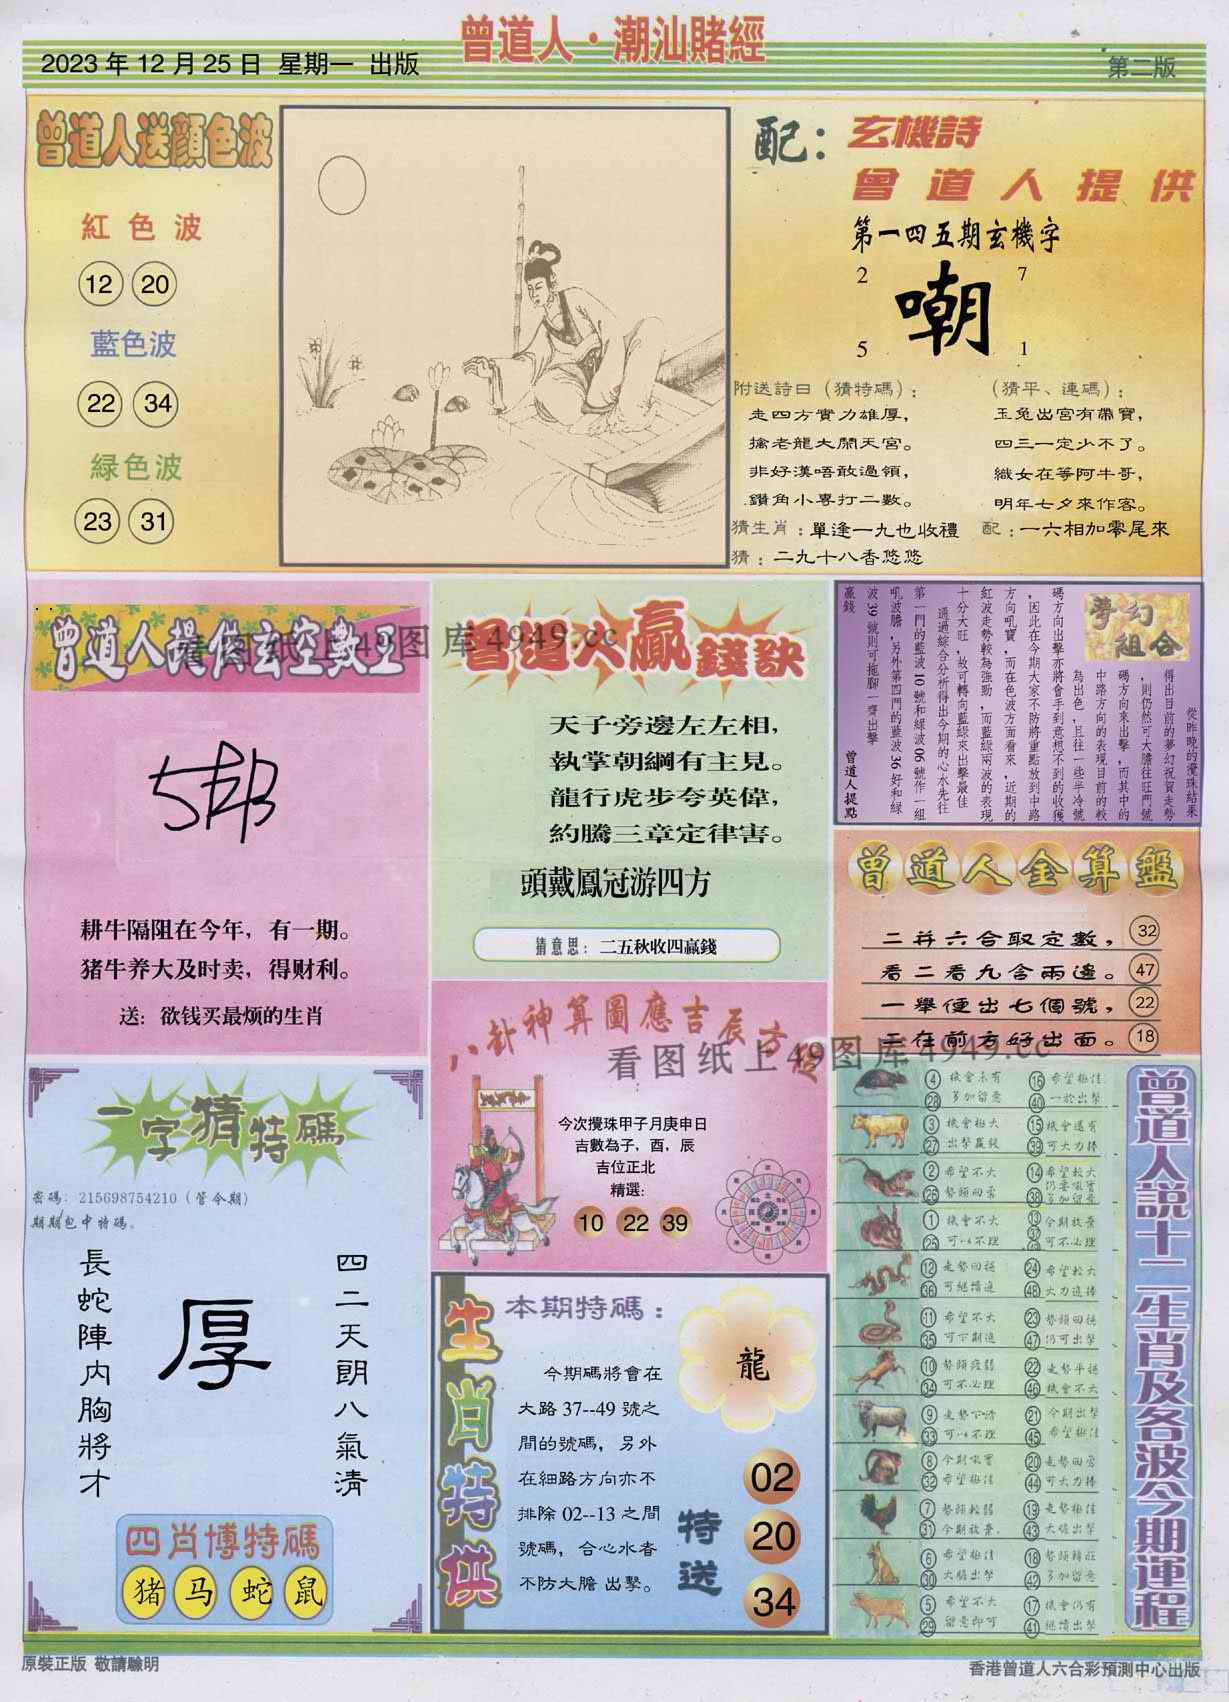 曾道人·潮汕賭經
2023 年 12 月 25 日  星期一  出版
第二版
曾道人送顏色波
紅色波
12 20
藍色波
22 34
緑色波
23 31
配：玄機詩
曾道人提供
第一四五期玄機字
2 7
嘲
5 1
附送詩曰（猜特碼）：
走四方實力雄厚，
擒老龍大鬧天宮。
非好漢唔敢過領，
鑽角小專打二數。
（猜平、連碼）：
玉兔出宮有帶寶，
四三一定少不了。
織女在等阿牛哥，
明年七夕來作客。
猜生肖：單逢一九也收禮
配：一六相加零尾來
猜：二九十八香悠悠
曾道人提供玄空數王
看图纸上49图库4949.cc
耕牛隔阻在今年，有一期。
猪牛养大及时卖，得财利。
送：欲钱买最烦的生肖
曾道人贏錢訣
天子旁邊左左相，
執掌朝綱有主見。
龍行虎步夸英偉，
約騰三章定律害。
頭戴鳳冠游四方
猜意思：二五秋收四贏錢
夢幻組合
從昨晚的攪珠結果
得出目前的夢幻祝賀走勢
，則仍然可大膽往旺門號
碼方向來出擊，而其中的
中路方向的表現目前的較
為出色，且往一些半冷號
碼方向出擊亦將會手到意想不到的收獲
，因此在今期大家不防將重點放到中路
方向吼寶，而在色波方面看來，近期的
紅波走勢較為強勁，而藍綠兩波的表現
十分大旺，故可轉向藍綠來出擊最佳
通過綜合分析得出今期的心水先往
第一門的藍波 10 號和綠波 06 號作一組
吼波膽，另外第四門的藍波 36 好和綠
波 39 號則可拖腳一齊出擊
贏錢
曾道人提點
曾道人金算盤
二并六合取定數， 32
看二看九含兩邊。 47
一舉便出七個號， 22
二在前方好出面。 18
八卦神算圖應吉辰方位
看图纸上49图库4949.cc
今次攪珠甲子月庚申日
吉數為子，酉，辰
吉位正北
精選:
10 22 39
一字猜特碼
密碼：215698754210（管今期）
期期包中特碼。
四二天朗八氣清
厚
長蛇陣内胸將才
四肖博特碼
猪 马 蛇 鼠
生肖特供
本期特碼：
龍
今期碼將會在
大路 37--49 號之
間的號碼，另外
在細路方向亦不
排除 02--13 之間
號碼，合心水者
不防大膽 出擊。
特送
02
20
34
曾道人説十二生肖及各波今期運程
4 28 機會未有 多加留意 16 40 希望極佳 一於出擊
3 27 機會極大 出擊贏錢 15 39 機會還有 可大力捧
2 26 希望不大 勢頭回氣 14 38 希望較大 仍要吼實 多加留意
1 25 機會不大 可以不理 13 37 今期放棄 可不必理
12 36 走勢回穩 可繼續追 24 48 希望較大 大力追捧
11 35 希望不大 可下期追 23 47 勢頭回穩 仍可出擊
10 34 勢頭疲弱 可不必理 22 46 走勢平穩 機會不大
9 33 走勢下滑 可以不理 21 45 今期出擊 希望極佳
8 32 今期吼實 希望極佳 20 44 走勢回勇 可大力捧
7 31 勢頭較弱 今期放棄. 19 43 走勢極佳 大膽出擊
6 30 希望極佳 大膽出擊 18 42 勢頭轉旺 多加留意
5 29 希望不大 留意即可 17 41 機會仍有 繼續出擊
原裝正版  敬請驗明
香港曾道人六合彩預測中心出版